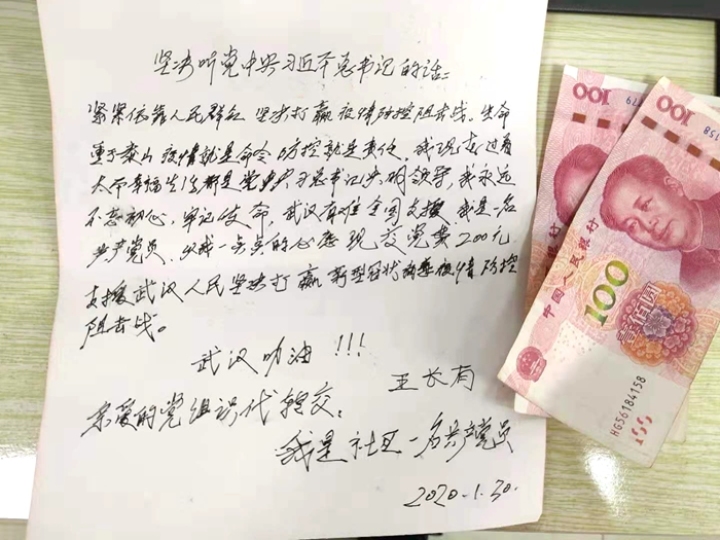 坚决听党中央习近平总书记的话：
紧紧依靠人民群众 坚决打赢疫情防控阻击战。生命
重于泰山 疫情就是命令 防控就是责任，我现在过着
太平幸福生活都是党中央习总书记英明领导，我永远
不忘初心，牢记使命，武汉有难全国支援 我是一名
共产党员，以我一点点的心意 现交党费200元
支援武汉人民坚决打赢新型冠状病毒疫情防控
阻击战。
武汉加油！！！
王长有
亲爱的党组识代转交。
我是社区一名共产党员
2020.1.30.
100
79
100
158
中国人民银行
100
HG56184158